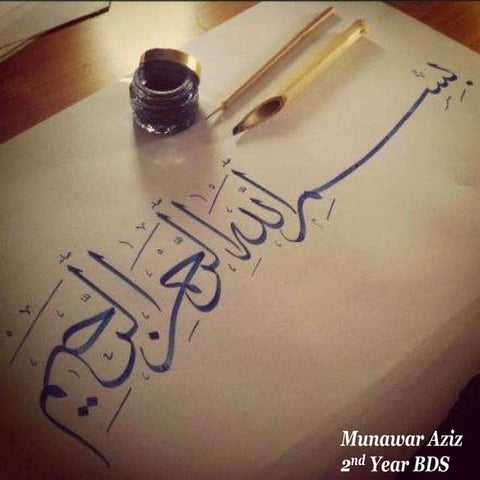 بِسْمِ اللهِ الرَّحْمٰنِ الرَّحِيْمِ
Munawar Aziz
2nd Year BDS